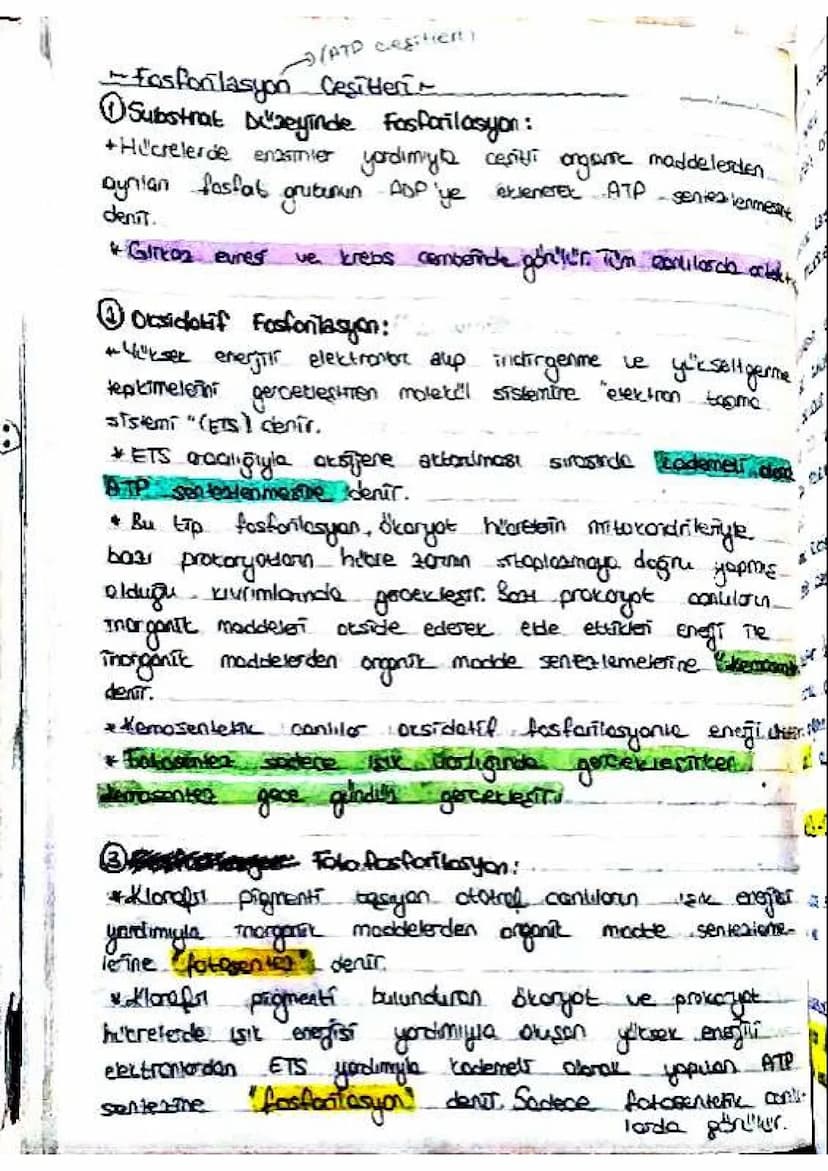 →(ATP Çeşitleri)
~Fosforilasyon Çeşitleri~
① Substrat Düzeyinde Fosforilasyon:
+Hücrelerde enzimler yardımıyla çeşitli organik maddelerden
ayrılan fosfat grubunun ADP'ye eklenerek ATP sentezlenmesine
denir.
* Glikoz evresi ve krebs çemberinde görülür. Tüm canlılarda
② Oksidatif Fosforilasyon:
+Yüksek enerjili elektronları alıp indirgenme ve yükseltgenme
tepkimelerini gerçekleştiren molekül sistemine "elektron taşıma
sistemi" (ETS) denir.
* ETS aracılığıyla oksijene aktarılması sırasında kademeli olarak
ATP sentezlenmesine denir.
* Bu tip fosforilasyon, ökaryot hücrelerin mitokondrileriyle
bazı prokaryotların hücre zarının sitoplazmaya doğru yapmış
olduğu kıvrımlarında gerçekleşir. Bazı prokaryot canlıların
inorganik maddeleri okside ederek elde ettikleri enerji ile
inorganik maddelerden organik madde sentezlemelerine
denir.
*Kemosentetik canlılar oksidatif fosforilasyonla enerji üretir.
* Fotosentez sadece ışık varlığında gerçekleşirken
kemosentez gece gündüz gerçekleşir.
③ Fotofosforilasyon:
*Klorofil pigmenti taşıyan ototrof canlıların ışık enerjisi
yardımıyla inorganik maddelerden organik madde sentezleme-
lerine "fotosentez" denir.
*Klorofil pigmenti bulunduran ökaryot ve prokaryot
hücrelerde ışık enerjisi yardımıyla oluşan yüksek enerjili
elektronlardan ETS yardımıyla kademeli olarak yapılan ATP
sentezine "fosforilasyon" denir. Sadece fotosentetik canlı-
larda görülür.